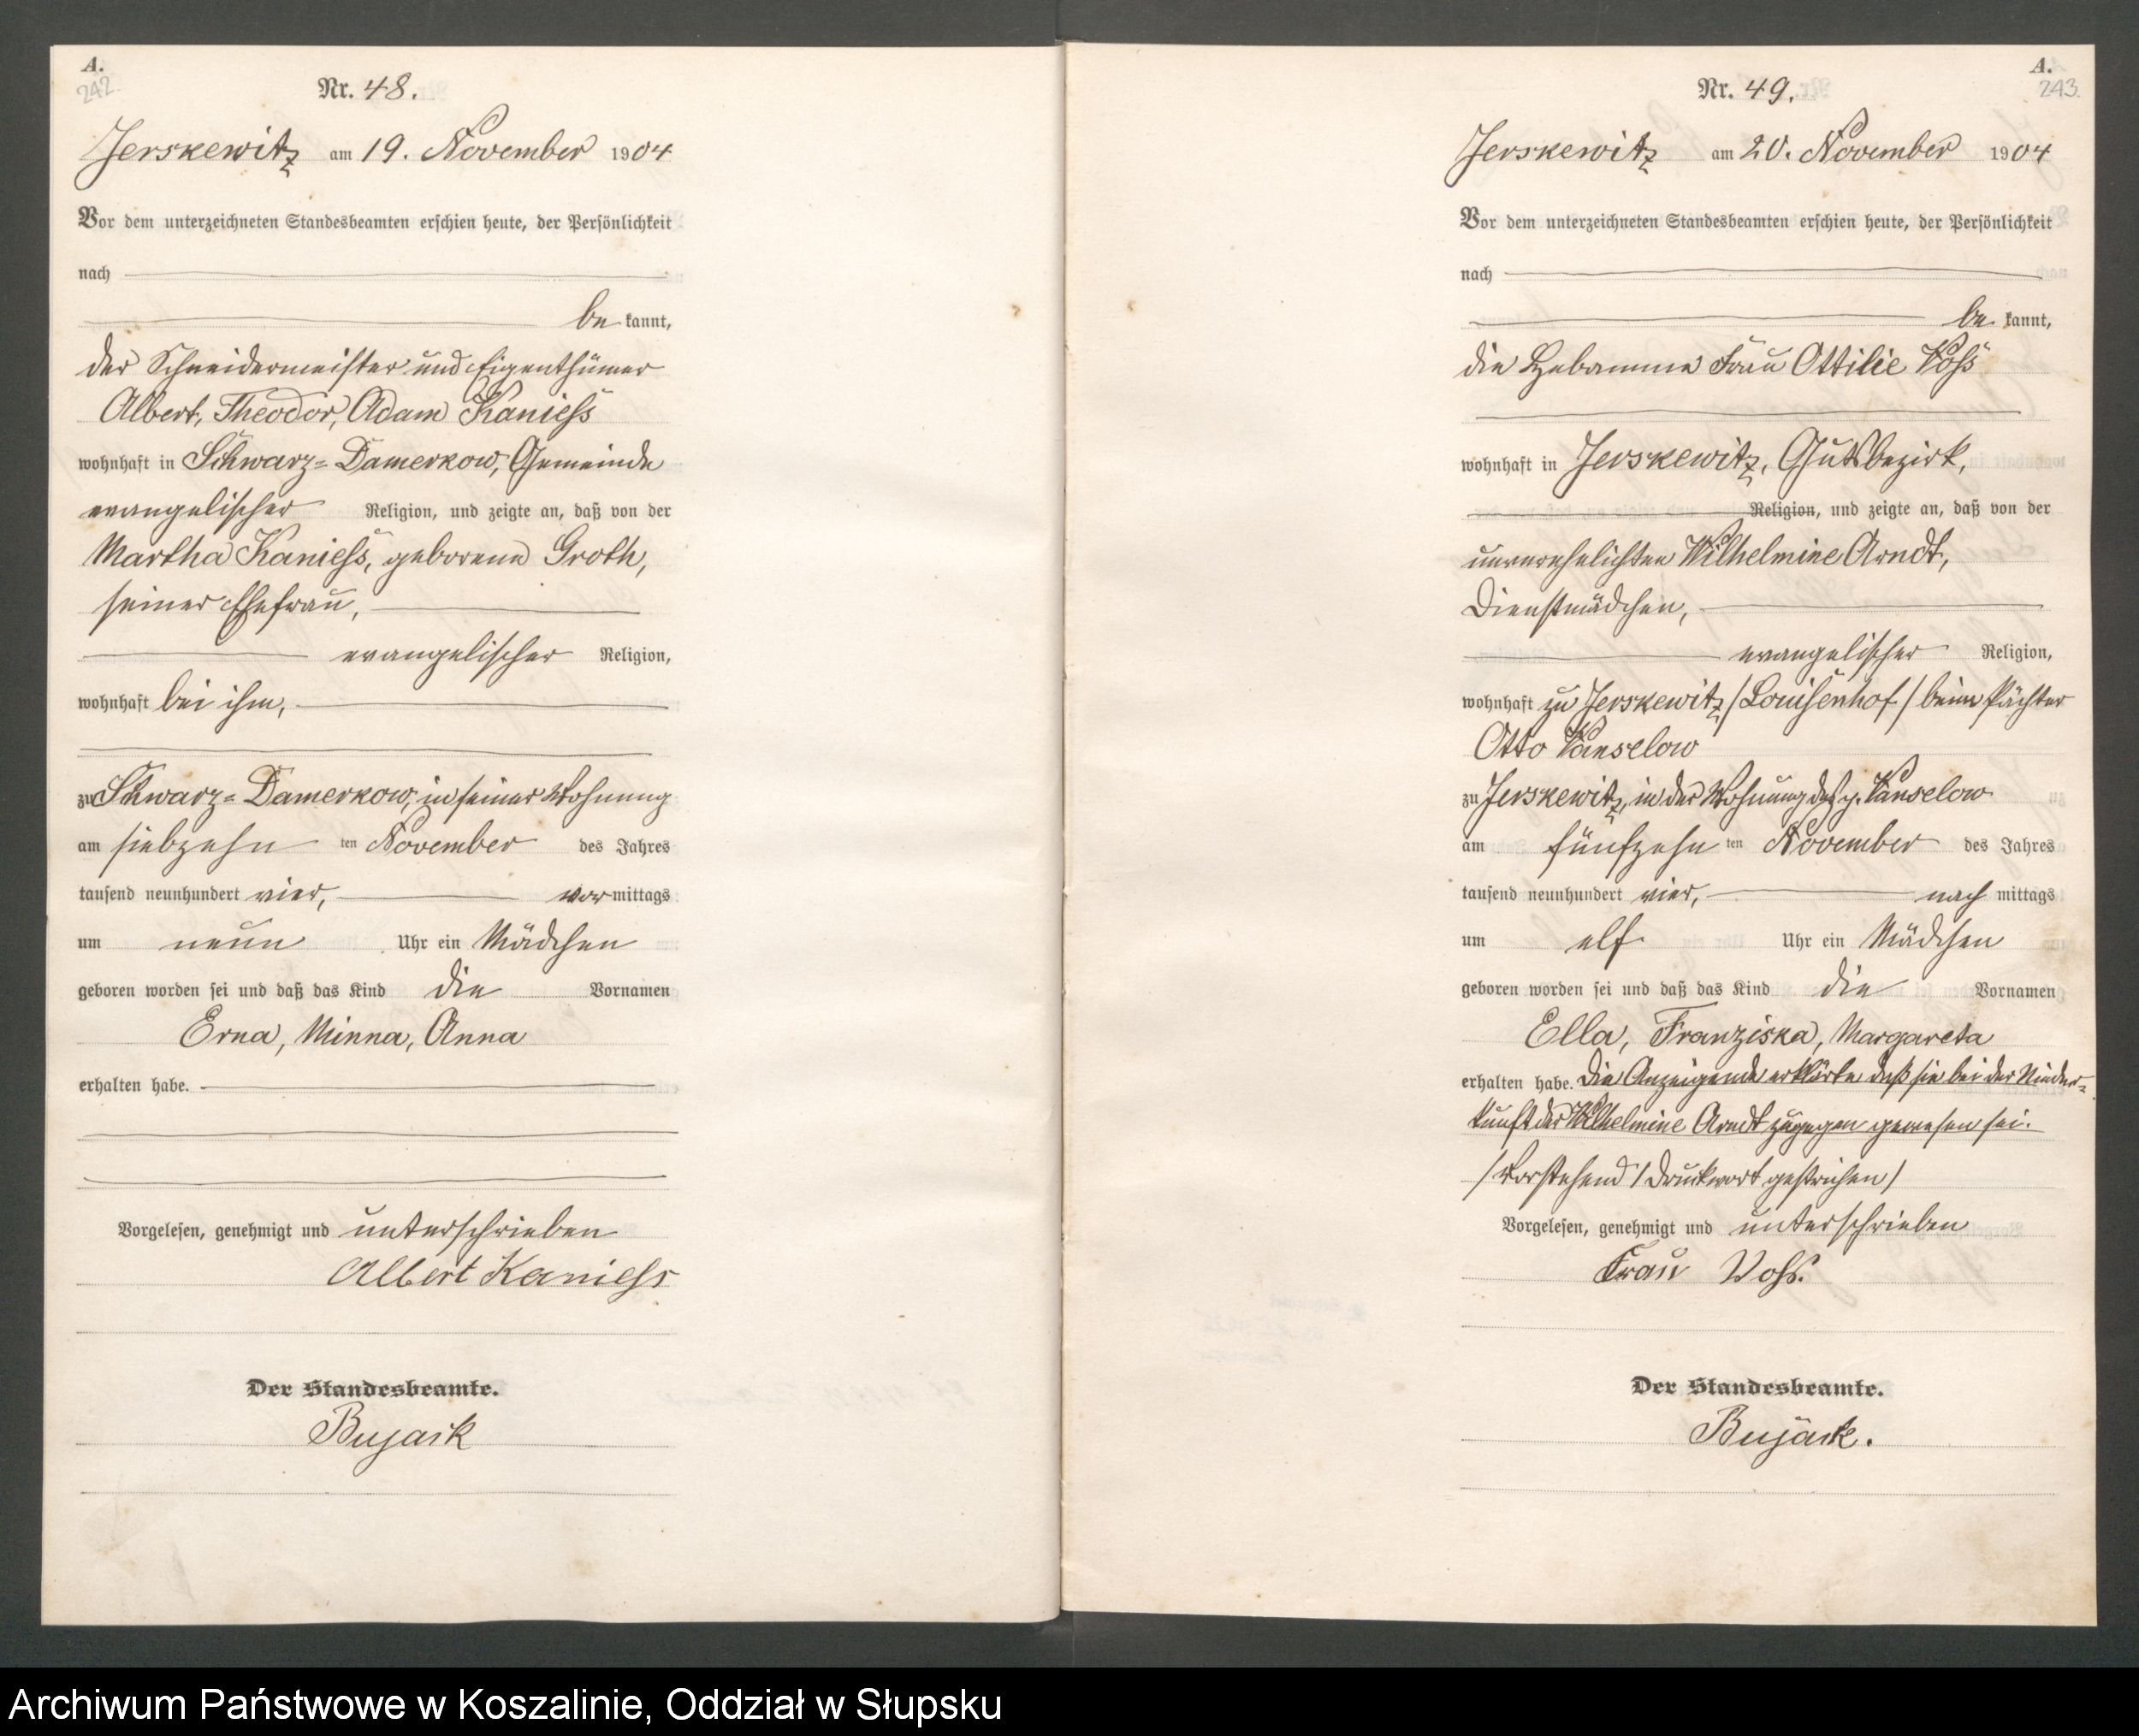 A.
242.
Nr. 48.
Jerskewitz am 19. November 1904
Vor dem unterzeichneten Standesbeamten erschien heute, der Persönlichkeit
nach
be kannt,
der Schneidermeister und Eigenthümer
Albert, Theodor, Adam Kaniess
wohnhaft in Schwarz=Damerkow, Gemeinde
evangelischer Religion, und zeigte an, daß von der
Martha Kaniess, geborene Groth,
seiner Ehefrau,
evangelischer Religion,
wohnhaft bei ihm,
zu Schwarz=Damerkow, in seiner Wohnung
am siebzehn ten November des Jahres
tausend neunhundert vier, vor mittags
um neun Uhr ein Mädchen
geboren worden sei und daß das Kind die Vornamen
Erna, Minna, Anna
erhalten habe.
Vorgelesen, genehmigt und unterschrieben
Albert Kaniess
Der Standesbeamte.
Bujack
A.
243.
Nr. 49.
Jerskewitz am 20. November 1904
Vor dem unterzeichneten Standesbeamten erschien heute, der Persönlichkeit
nach
be kannt,
die Hebamme Frau Ottilie Voß
wohnhaft in Jerskewitz, Gutsbezirk,
Religion, und zeigte an, daß von der
unverehelichten Wilhelmine Arndt,
Dienstmädchen,
evangelischer Religion,
wohnhaft zu Jerskewitz /Louisenhof/ beim Pächter
Otto Vanselow
zu Jerskewitz, in der Wohnung des p. Vanselow
am fünfzehn ten November des Jahres
tausend neunhundert vier, nach mittags
um elf Uhr ein Mädchen
geboren worden sei und daß das Kind die Vornamen
Ella, Franziska, Margareta
erhalten habe. Die Anzeigende erklärte daß sie bei der Nieder=
kunft der Wilhelmine Arndt zugegen gewesen sei.
/Vorstehend 1 Druckwort gestrichen/
Vorgelesen, genehmigt und unterschrieben
Frau Voß.
Der Standesbeamte.
Bujack.
Archiwum Państwowe w Koszalinie, Oddział w Słupsku